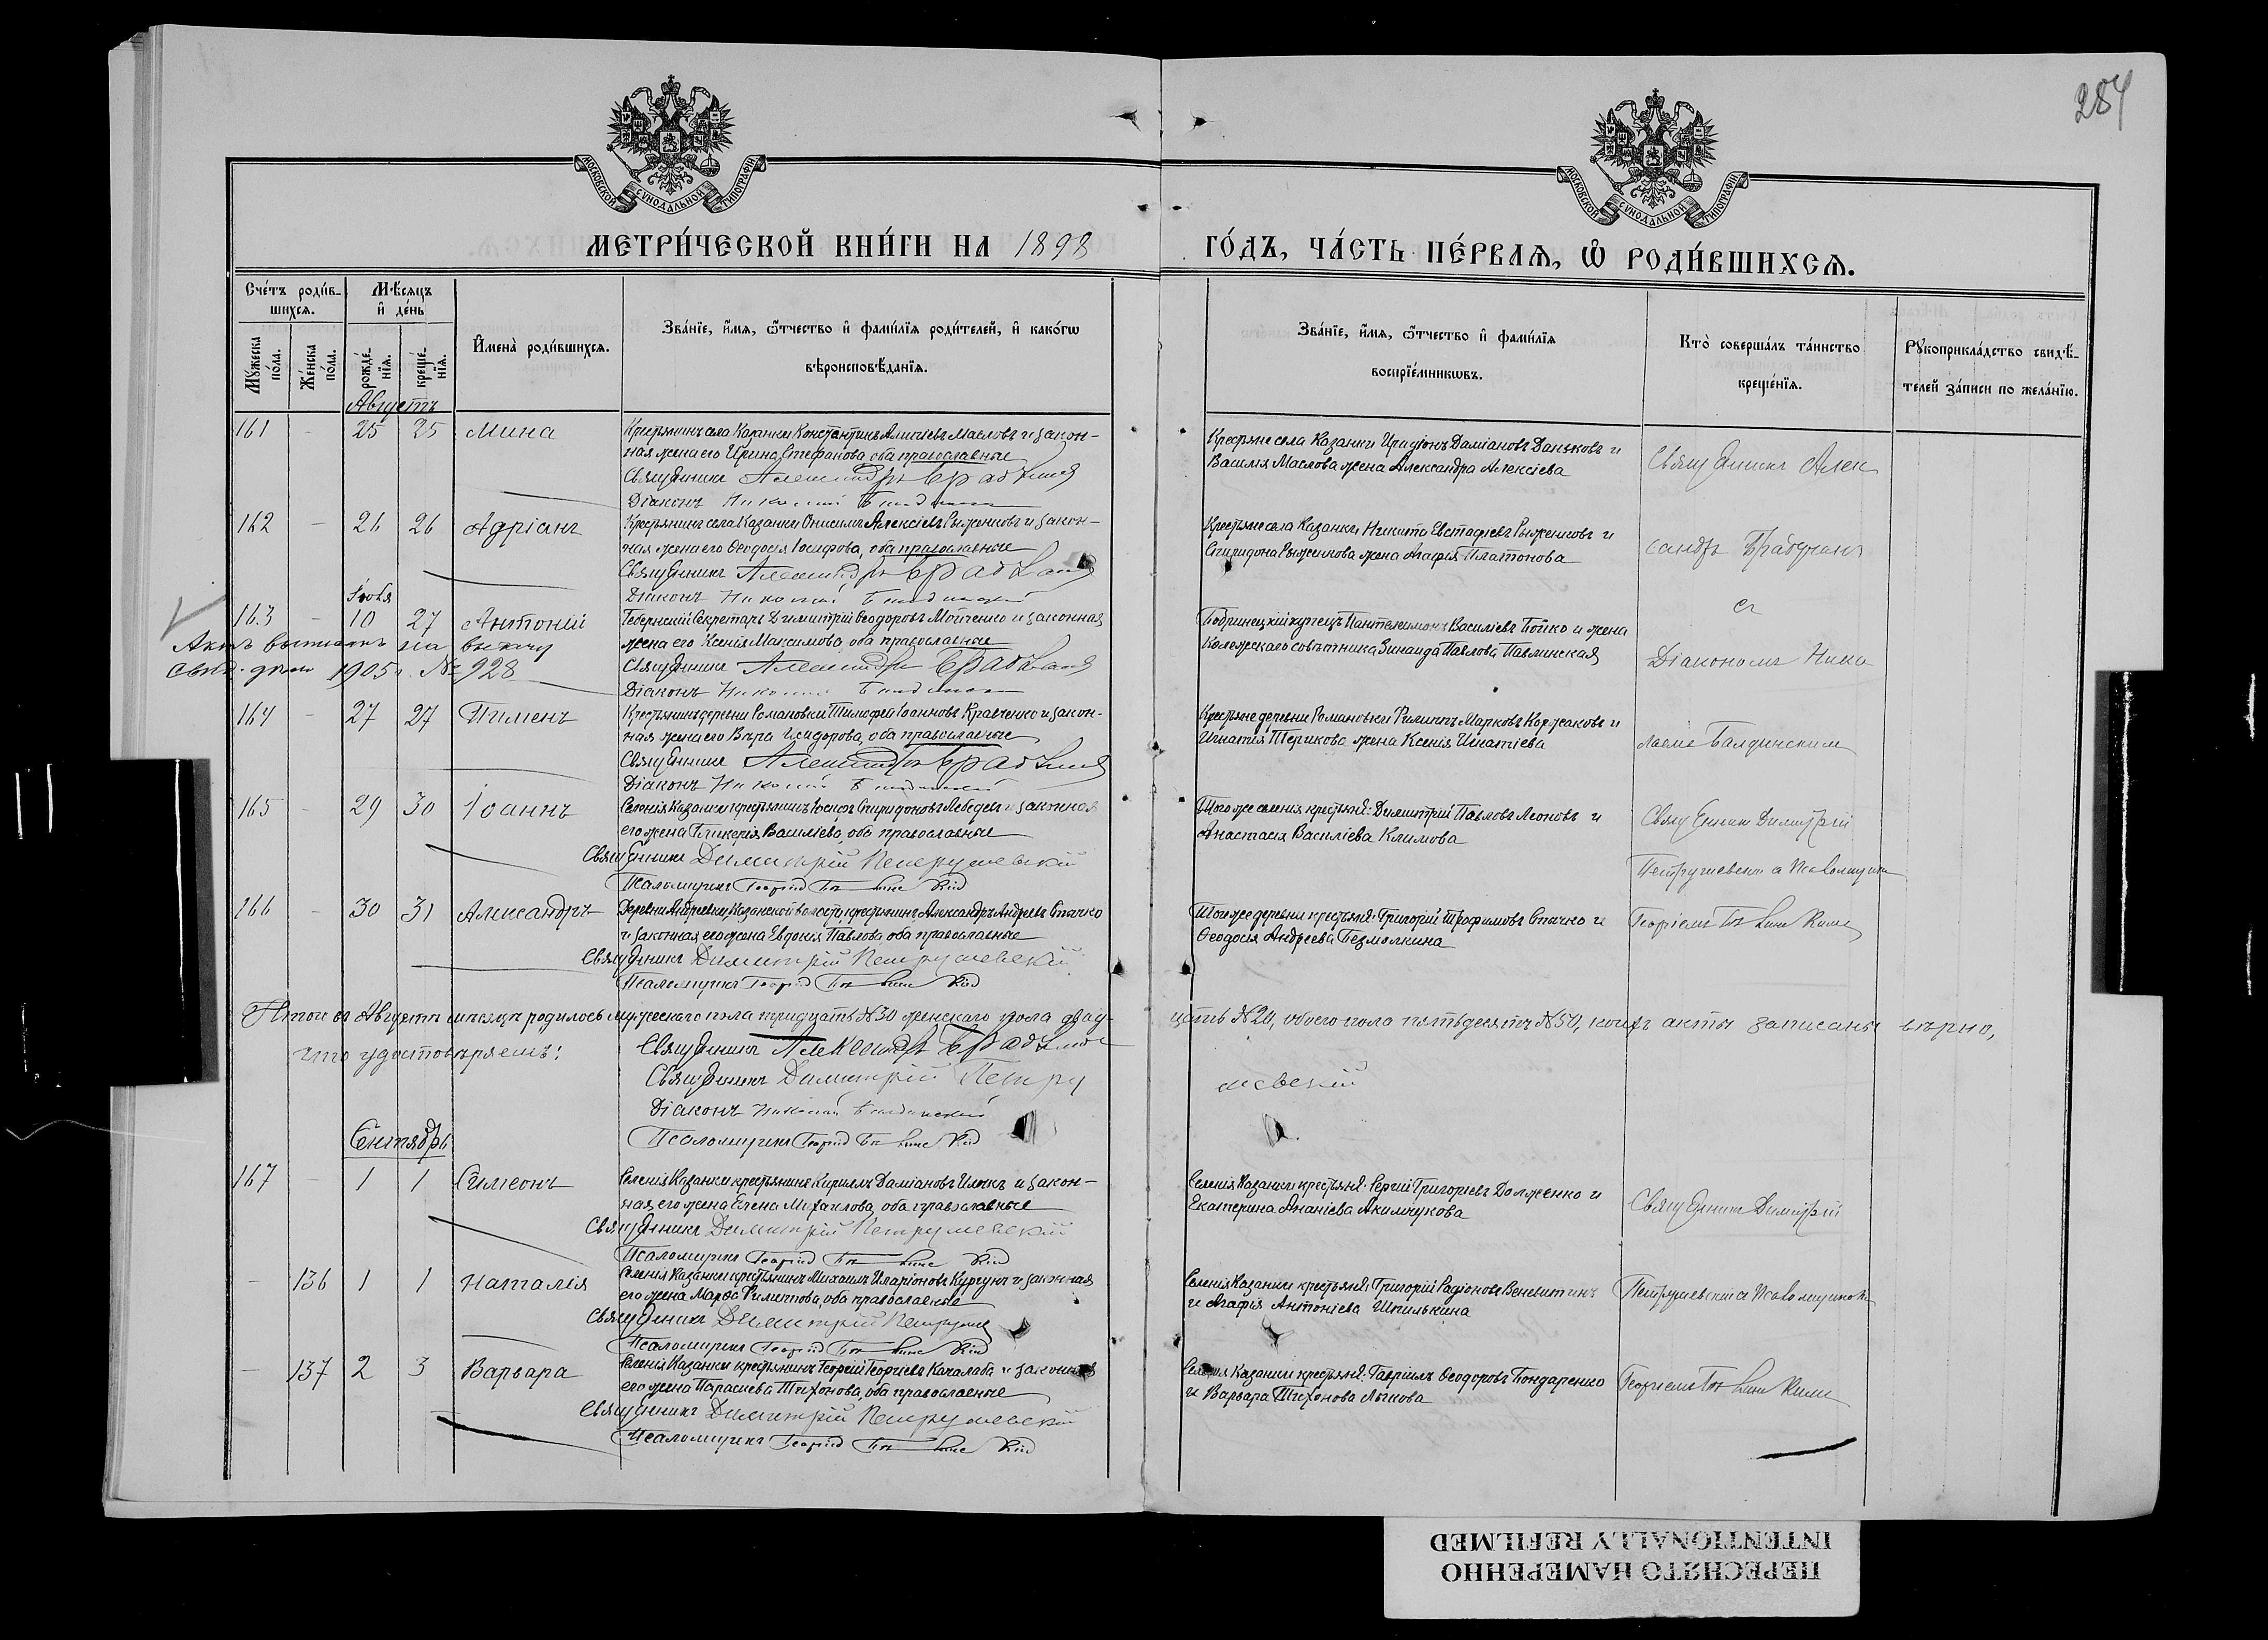 284
МОСКОВСКОЙ СѴНОДАЛЬНОЙ ТИПОГРАФІИ
МОСКОВСКОЙ СѴНОДАЛЬНОЙ ТИПОГРАФІИ
МЕТРИ́ЧЕСКОЙ КНИ́ГИ НА 1898
ГО́ДЪ, ЧА́СТЬ ПЕ́РВАѦ, Ѡ҆ РОДИ́ВШИХСѦ.
Сче́тъ роди́в-
шихсѧ.
Мужеска по́ла.
Же́нска по́ла.
Мѣ́сѧцъ
и҆ де́нь
рожде́-
нїѧ.
креще́-
нїѧ.
И҆мена̀ роди́вшихсѧ.
Зва́нїе, и҆́мѧ, ѻ҆́тчество и҆ фамѝлїѧ роди́телей, и҆ како́гѡ
вѣроисповѣ́данїѧ.
Зва́нїе, и҆́мѧ, ѻ҆́тчество и҆ фамѝлїѧ
воспрїе́мникѡвъ.
Кто̀ соверша́лъ та́инство
креще́нїѧ.
Рꙋкоприкла́дство свидѣ́-
телей за́писи по жела́нїю.
Августъ
161 - 25 25 Мина
Крестьянинъ села Казанки Константинъ Масловъ и закон-
ная жена его Ирина Стефанова, оба православные
Священникъ Александръ
Діаконъ Николай
Крестьяне села Казанки Даміановъ Даньковъ и
Василія Маслова жена Александра Алексіева
Священникъ Алек
162 - 26 26 Адріанъ
Крестьянинъ села Казанки Онисимъ Алексіевъ Рыженковъ и закон-
ная жена его Ѳеодосія Іосифова, оба православные
Священникъ Александръ
Діаконъ Николай
Крестьяне села Казанки Никита Евстафіевъ Рыженковъ и
Спиридона Рыженкова жена Агафія Платонова
сандръ
Іюля
163 - 10 27 Антоній
Губернскій Секретарь Димитрій Ѳеодоровъ Мойченко и законная
жена его Ксенія Максимова, оба православные
Священникъ Александръ
Діаконъ Николай
Бобринецкій купецъ Пантелеимонъ Василіевъ Бойко и жена
Коллежскаго совѣтника Зинаида Павлова Павлинская
съ
Діакономъ Нико
1905 г. № 928
164 - 27 27 Пименъ
Крестьянинъ деревни Романовки Тимофей Іоанновъ Кравченко и закон-
ная жена его Вѣра Исидорова, оба православные
Священникъ Александръ
Діаконъ Николай
Крестьяне деревни Романовки Филиппъ Марковъ Коржаковъ и
Игнатія Терикова жена Ксенія Игнатіева
лаемъ Балдинскимъ
165 - 29 30 Іоаннъ
Селенія Казанки крестьянинъ Іосифъ Спиридоновъ Лебедевъ и законная
его жена Гликерія Василіева, оба православные
Священникъ Димитрій Петрушевскій
Псаломщикъ Георгій
Того же селенія крестьяне: Димитрій Павловъ Леоновъ и
Анастасія Василіева Климова
Священникъ Димитрій
Петрушевскій съ Псаломщикомъ
166 - 30 31 Александръ
Деревни Андреевки, Казанской волости, крестьянинъ Александръ Андреевъ Спичко
и законная его жена Евдокія Павлова, оба православные
Священникъ Димитрій Петрушевскій
Псаломщикъ Георгій
Той же деревни крестьяне: Григорій Трофимовъ Спичко и
Ѳеодосія Андреева Безмолкина
Георгіемъ
Итого въ Августѣ мѣсяцѣ родилось мужескаго пола тридцать №30 женскаго пола двад-
цать №20, обоего пола пятьдесятъ №50, коихъ акты записаны вѣрно,
что удостовѣряемъ:
Священникъ Александръ
Священникъ Димитрій Петру
шевскій
Діаконъ Николай Балдинскій
Псаломщикъ Георгій
Сентябрь
167 - 1 1 Симеонъ
Селенія Казанки крестьянинъ Кириллъ Даміановъ и закон-
ная его жена Елена Михаилова, оба православные
Священникъ Димитрій Петрушевскій
Псаломщикъ Георгій
Селенія Казанки крестьяне: Сергій Григоріевъ Долженко и
Екатерина Ананіева Акимчукова
Священникъ Димитрій
- 136 1 1 Наталія
Селенія Казанки крестьянинъ Михаилъ Иларіоновъ Кургунъ и законная
его жена Марѳа Филиппова, оба православные
Священникъ Димитрій
Псаломщикъ Георгій
Селенія Казанки крестьяне: Григорій Родіоновъ Веневитинъ
и Агафія Антоніева Шпилькина
Петрушевскій съ Псаломщикомъ
- 137 2 3 Варвара
Селенія Казанки крестьянинъ Георгій Георгіевъ Качалаба и законная
его жена Параскева Тихонова, оба православные
Священникъ Димитрій Петрушевскій
Псаломщикъ Георгій
Селенія Казанки крестьяне: Гавріилъ Ѳеодоровъ Бондаренко
и Варвара Тихонова Лычкова
Георгіемъ
ПЕРЕСНЯТО НАМЕРЕННО
INTENTIONALLY REFILMED